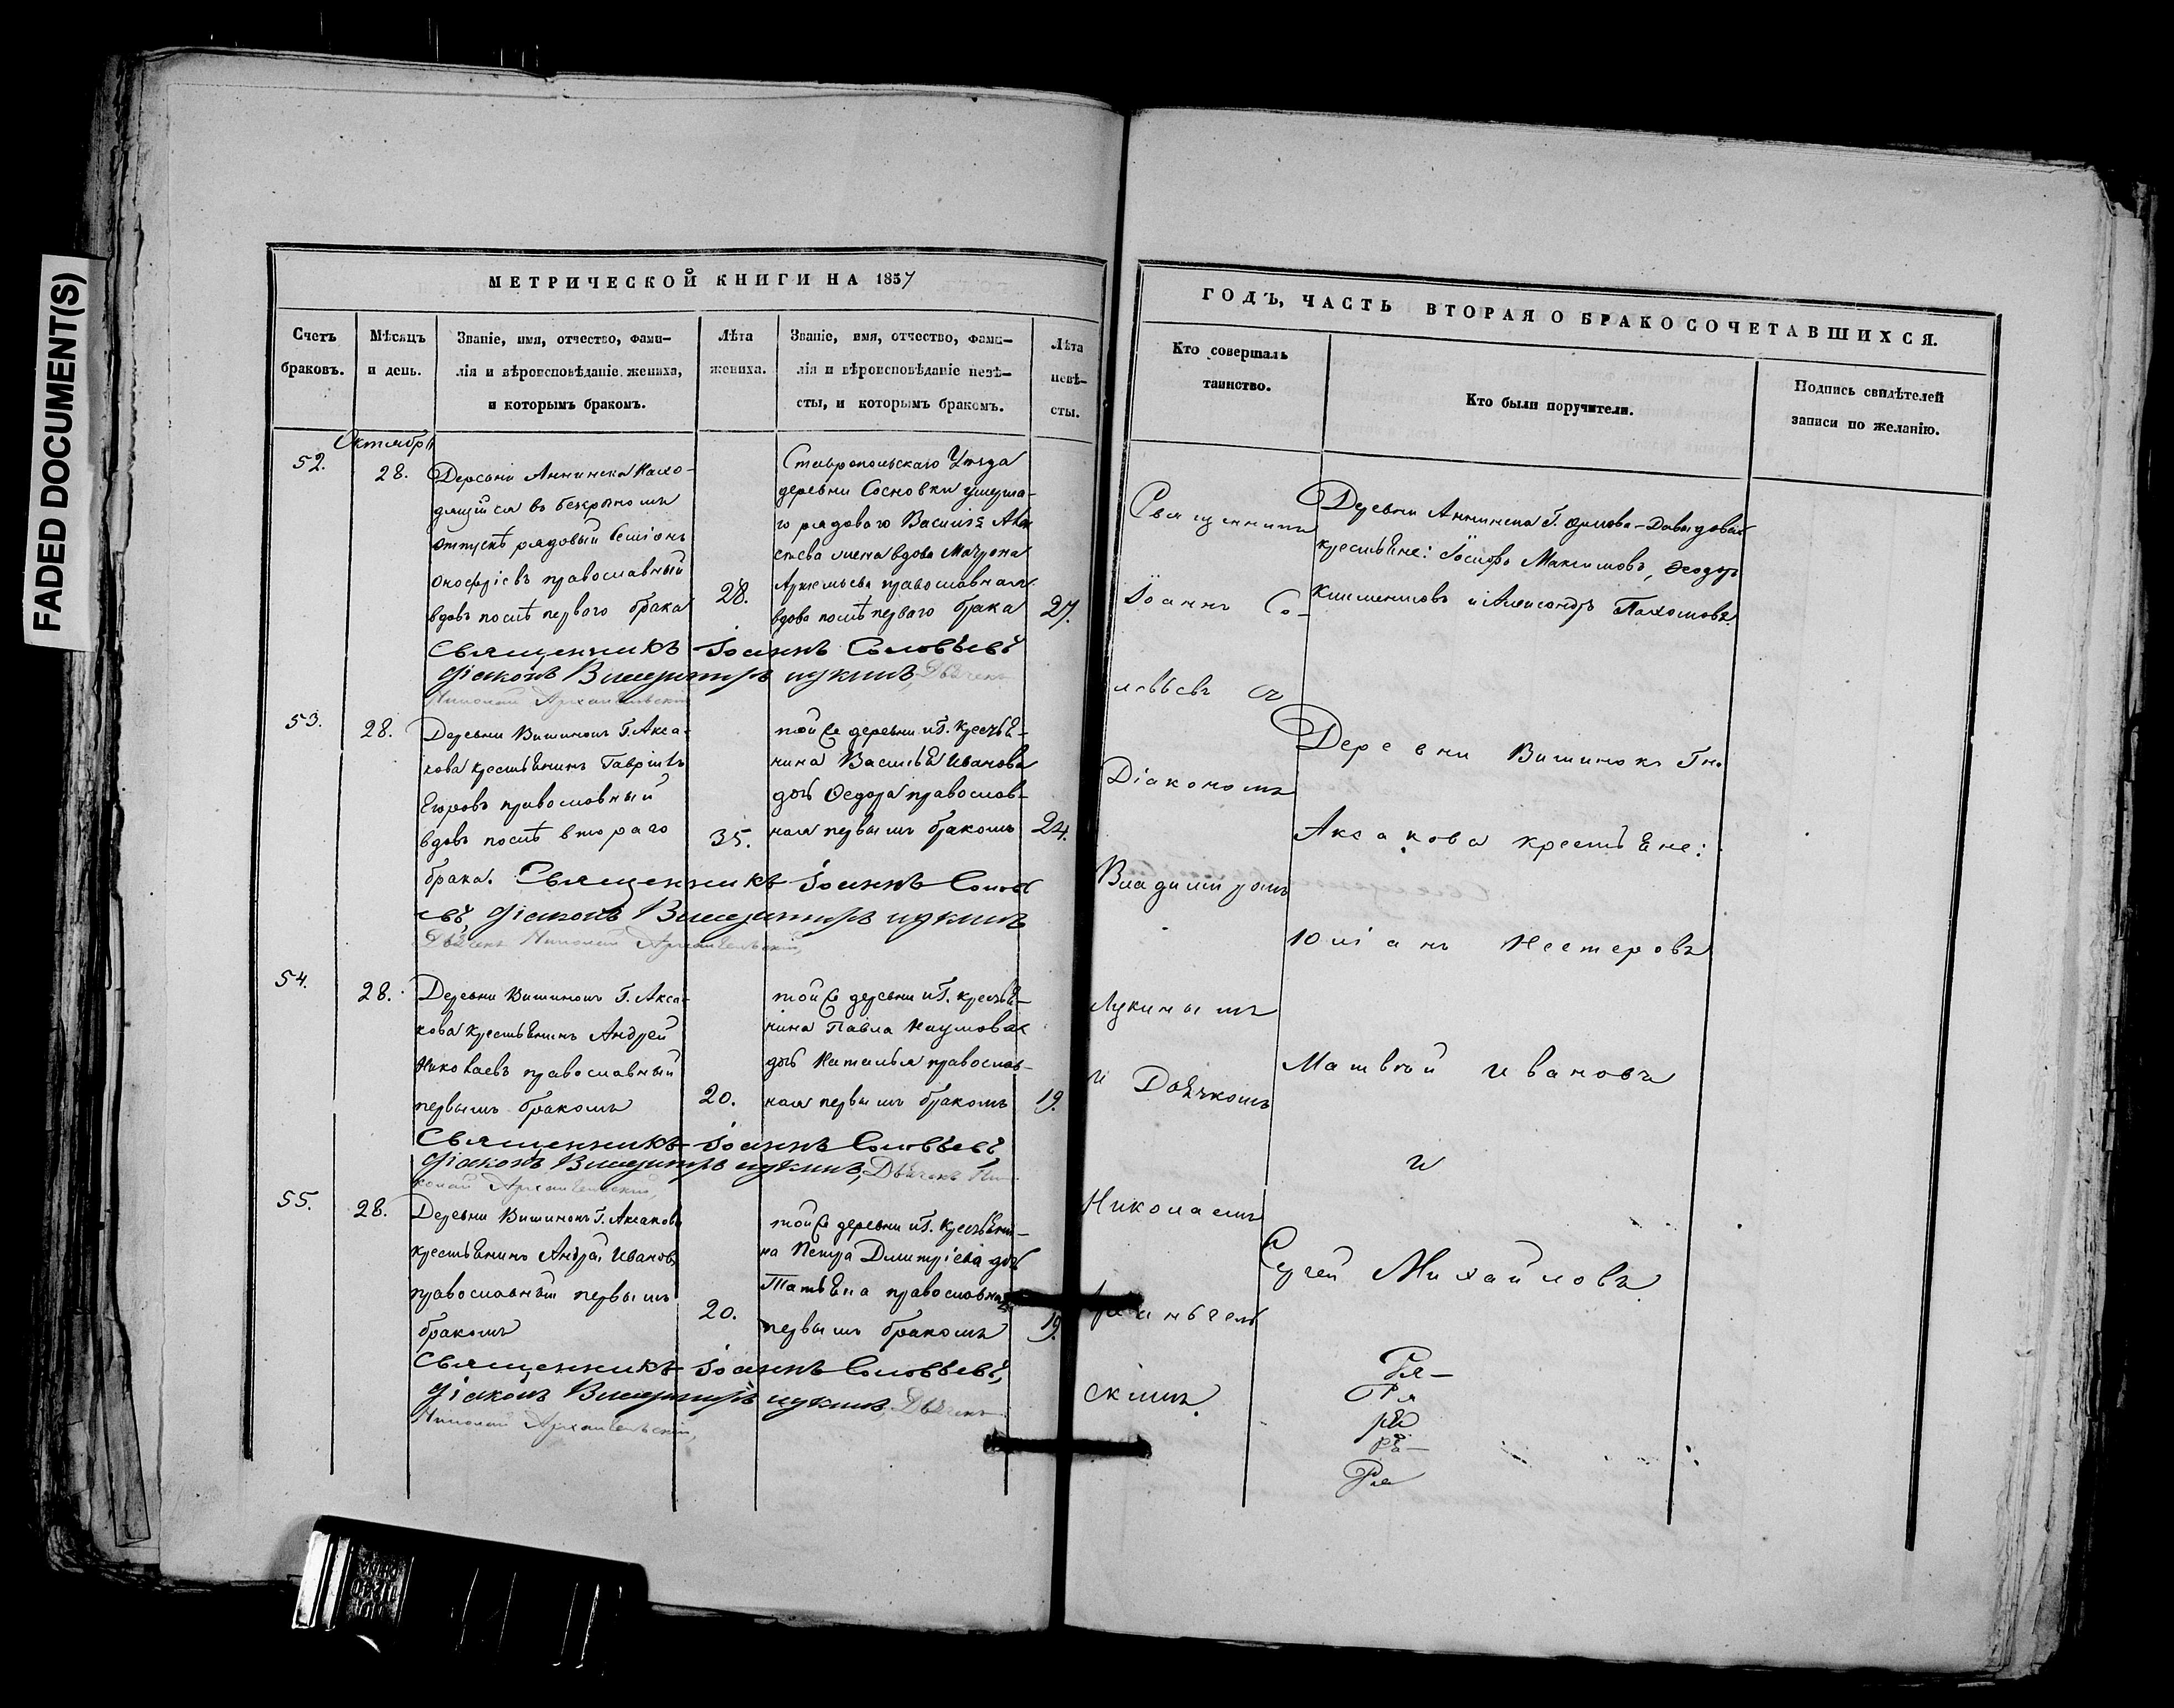 FADED DOCUMENT(S)
МЕТРИЧЕСКОЙ КНИГИ НА 1857
Счетъ браковъ.
Мѣсяцъ и день.
Званіе, имя, отчество, фами-
лія и вѣроисповѣданіе жениха,
и которымъ бракомъ.
Лѣта жениха.
Званіе, имя, отчество, фами-
лія и вѣроисповѣданіе невѣ-
сты, и которымъ бракомъ.
Лѣта невѣ-
сты.
Октября
52.
28.
Деревни Аннинска Нахо-
дящійся въ безсрочномъ
отпускѣ рядовый Семіонъ
Онофріевъ православный
вдовъ послѣ перваго брака
28.
Ставропольскаго Уѣзда
деревни Сосновки умерша-
го рядоваго Василія
жена вдова Матрона
Артемьева православная
вдова послѣ перваго брака
27.
Священникъ Іоаннъ Соловьевъ
Діаконъ Владимиръ Лукинъ, Дьячекъ
Николай Архангельскій
53.
28.
Деревни Вишинокъ Г. Акса-
кова крестьянинъ Гавріилъ
Егоровъ православный
вдовъ послѣ втораго
брака.
35.
той же деревни и Г. крестья-
нина Василья Иванова
дочь Ѳедора православ-
ная первымъ бракомъ
24.
Священникъ Іоаннъ Соловь
евъ, Діаконъ Владимиръ Лукинъ
Дьячекъ Николай Архангельскій,
54.
28.
Деревни Вишинокъ Г. Акса-
кова крестьянинъ Андрей
Николаевъ православный
первымъ бракомъ
20.
той же деревни и Г. крестья-
нина Павла Наумова
дочь Наталья православ-
ная первымъ бракомъ
19.
Священникъ Іоаннъ Соловьевъ
Діаконъ Владимиръ Лукинъ, Дьячекъ Ни-
колай Архангельскій,
55.
28.
Деревни Вишинокъ Г. Аксакова
крестьянинъ Андрей Ивановъ
православный первымъ
бракомъ
20.
той же деревни и Г. крестьяни-
на Петра Димитріева дочь
Татьяна православная
первымъ бракомъ
19.
Священникъ Іоаннъ Соловьевъ,
Діаконъ Владимиръ Лукинъ, Дьячекъ
Николай Архангельскій,
ГОДЪ, ЧАСТЬ ВТОРАЯ О БРАКОСОЧЕТАВШИХСЯ.
Кто совершалъ
таинство.
Кто были поручители.
Подпись свидѣтелей
записи по желанію.
Священникъ
Іоаннъ Со-
ловьевъ съ
Діакономъ
Владимиромъ
Лукинымъ
и Дьячкомъ
Николаемъ
скимъ.
Деревни Аннинска Г. Орлова-Давыдова
крестьяне: Іосифъ Максимовъ, Ѳеодоръ
Климентовъ и Александръ Пахомовъ.
Деревни Вишинокъ Гна
Аксакова крестьяне:
Юліанъ Нестеровъ
Матвѣй Ивановъ
и
Сергей Михайловъ